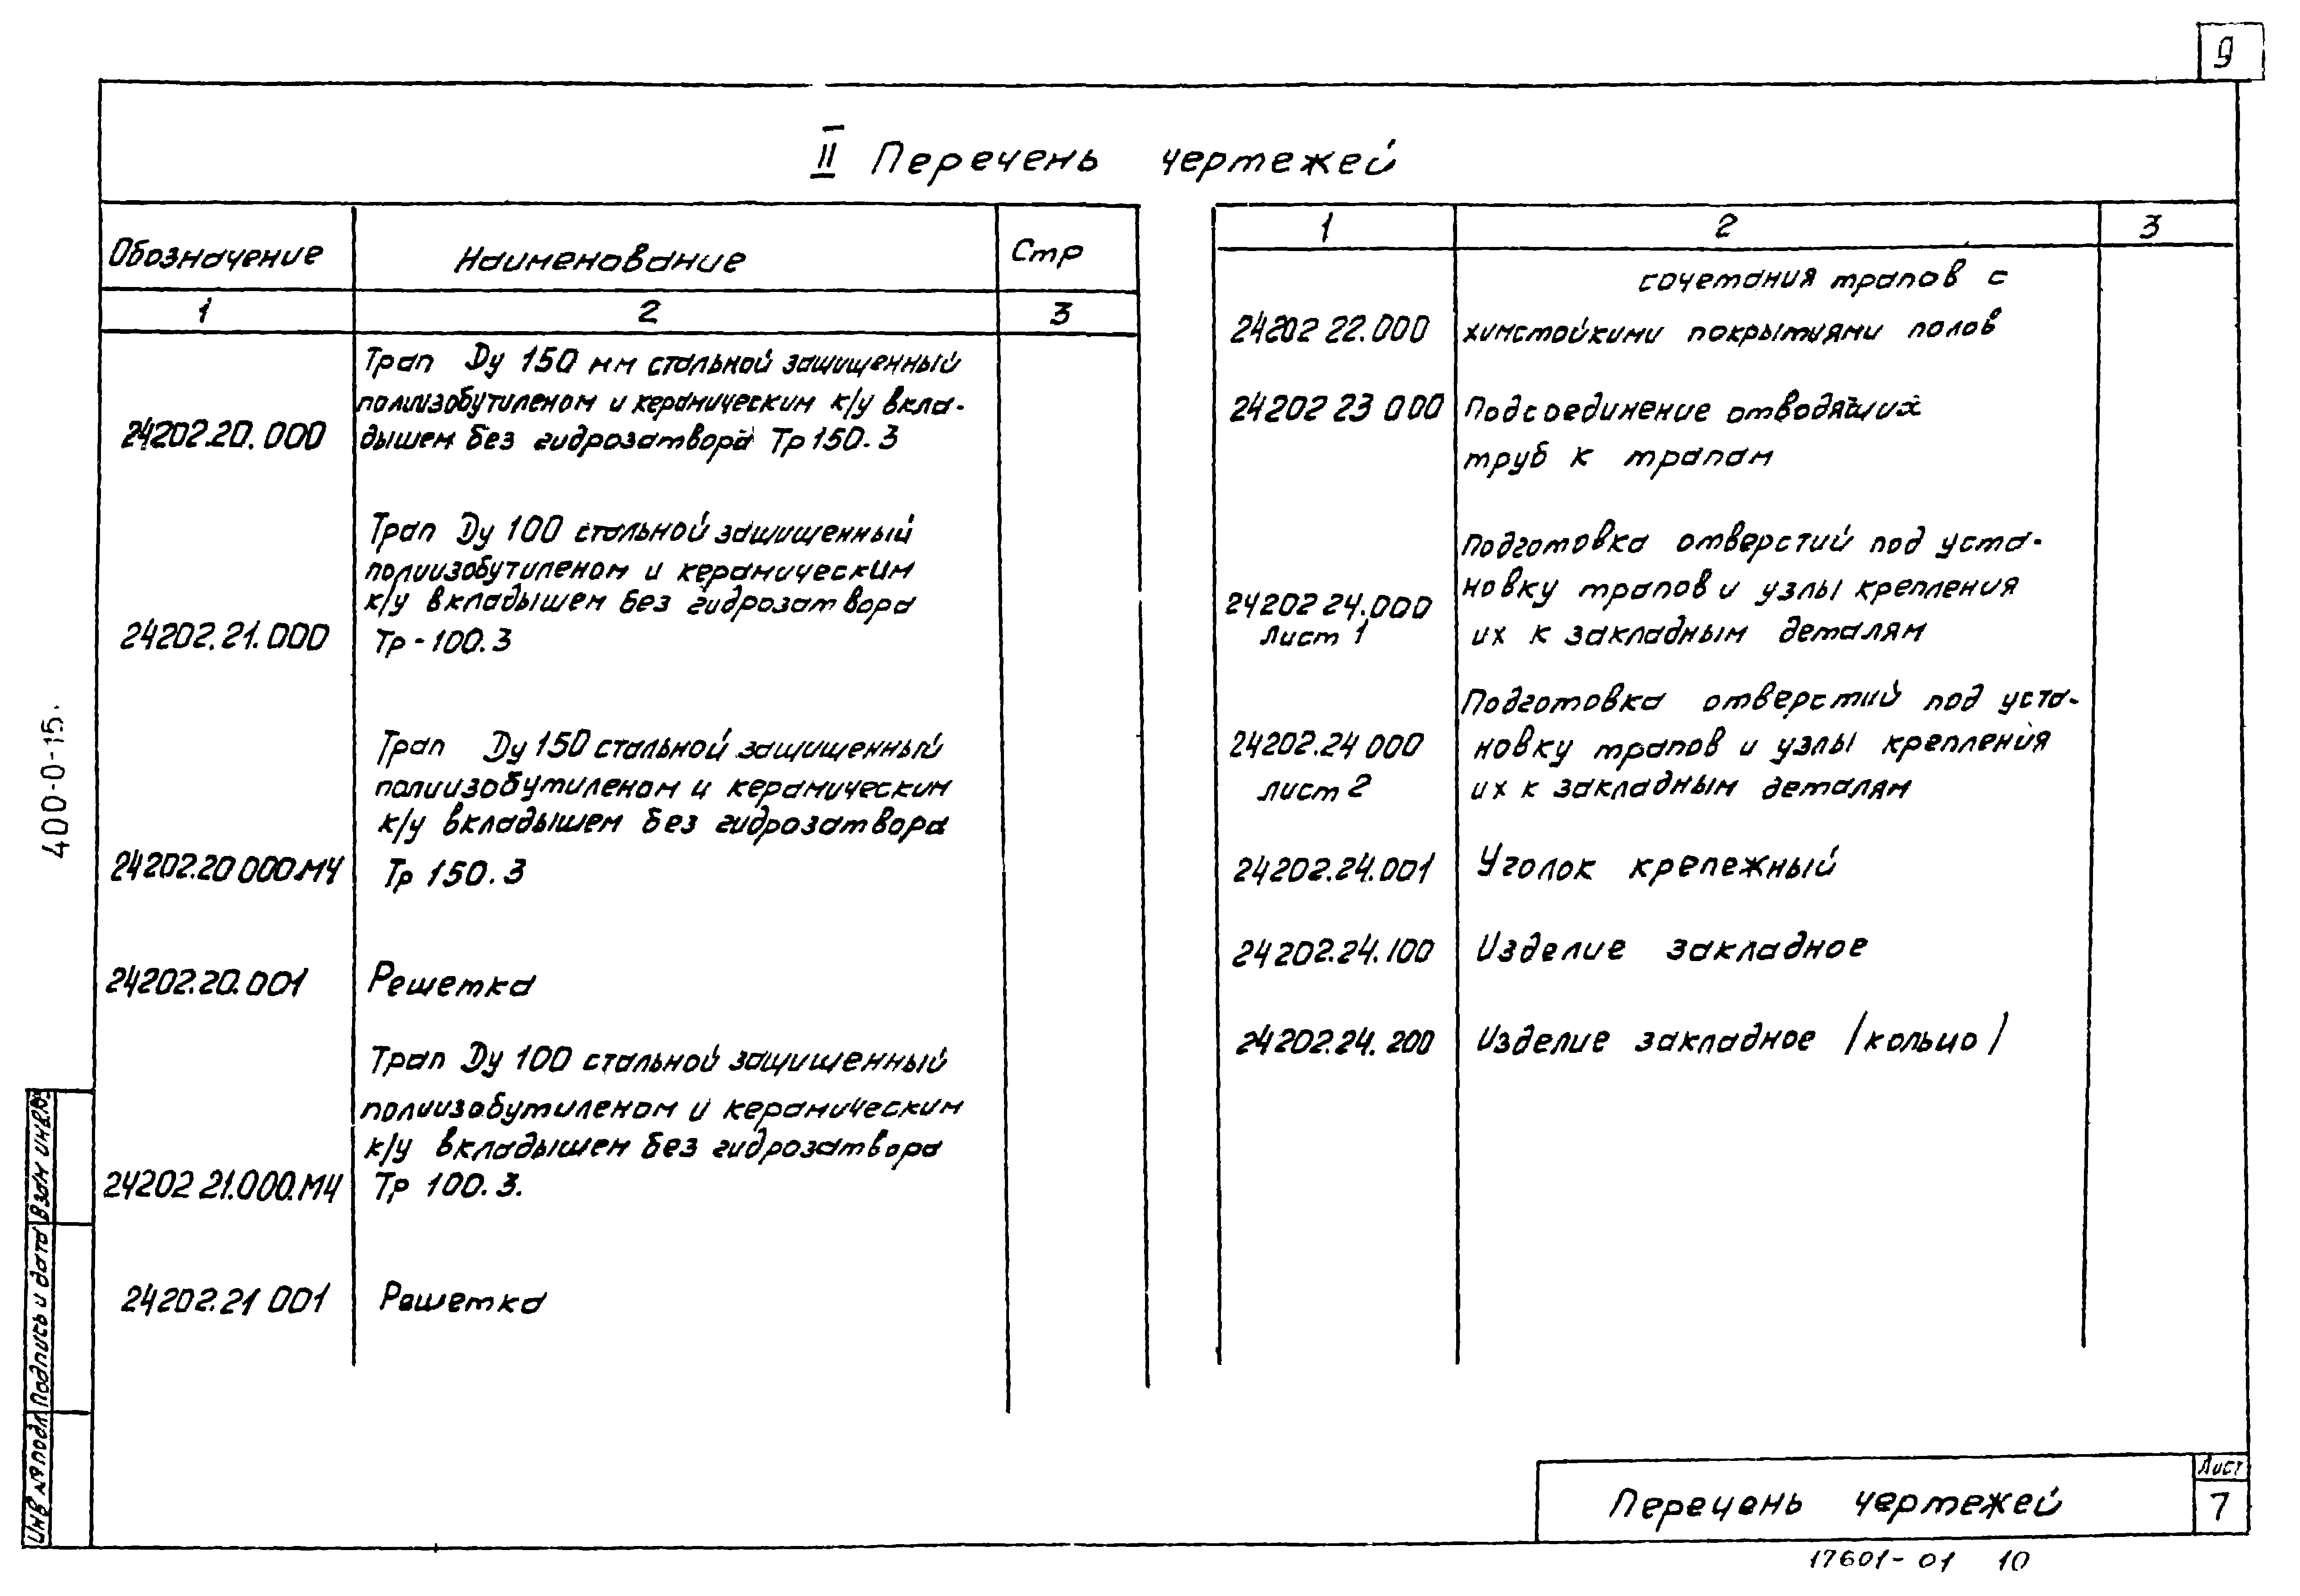 9
II Перечень чертежей
Обозначение Наименование Стр
1 2 3
Трап Ду 150 мм стальной защищенный
полиизобутиленом и керамическим к/у вкла-
24202.20.000 дышем без гидрозатвора Тр 150.3
Трап Ду 100 стальной защищенный
полиизобутиленом и керамическим
к/у вкладышем без гидрозатвора
24202.21.000 Тр-100.3
Трап Ду 150 стальной защищенный
полиизобутиленом и керамическим
к/у вкладышем без гидрозатвора
24202.20 000.МЧ Тр 150.3
24202.20.001 Решетка
Трап Ду 100 стальной защищенный
полиизобутиленом и керамическим
к/у вкладышем без гидрозатвора
24202 21.000.МЧ Тр 100.3.
24202.21 001 Решетка
1 2 3
сочетания трапов с
24202 22.000 химстойкими покрытиями полов
24202 23 000 Подсоединение отводящих
труб к трапам
Подготовка отверстий под уста-
24202 24.000 новку трапов и узлы крепления
лист 1 их к закладным деталям
Подготовка отверстий под уста-
24202.24 000 новку трапов и узлы крепления
лист 2 их к закладным деталям
24202.24.001 Уголок крепежный
24202.24.100 Изделие закладное
24202.24.200 Изделие закладное /кольцо/
400-0-15.
Взам инв№
Подпись и дата
Инв № подл
Перечень чертежей
Лист
7
17601-01 10